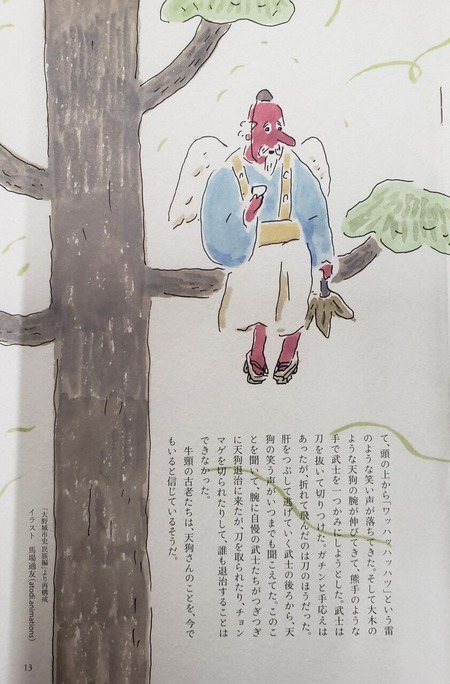 て、頭の上から「ワッハッハッハッ」という雷
のような笑い声が落ちてきた。そして大木の
ような天狗の腕が伸びてきて、熊手のような
手で武士を一つかみにしようとした。武士は
刀を抜いて切りつけた。ガチンと手応えは
あったが、折れて飛んだのは刀のほうだった。
肝をつぶして逃げていく武士の後ろから、天
狗の笑う声がいつまでも聞こえてた。このこ
とを聞いて、腕に自慢の武士たちがつぎつぎ
に天狗退治に来たが、刀を取られたり、チョン
マゲを切られたりして、誰も退治することは
できなかった。
牛頸の古老たちは、天狗さんのことを、今で
もいると信じているそうだ。
「大野城市史 民族編」より再構成
イラスト 馬場通友(abodi animations)
13